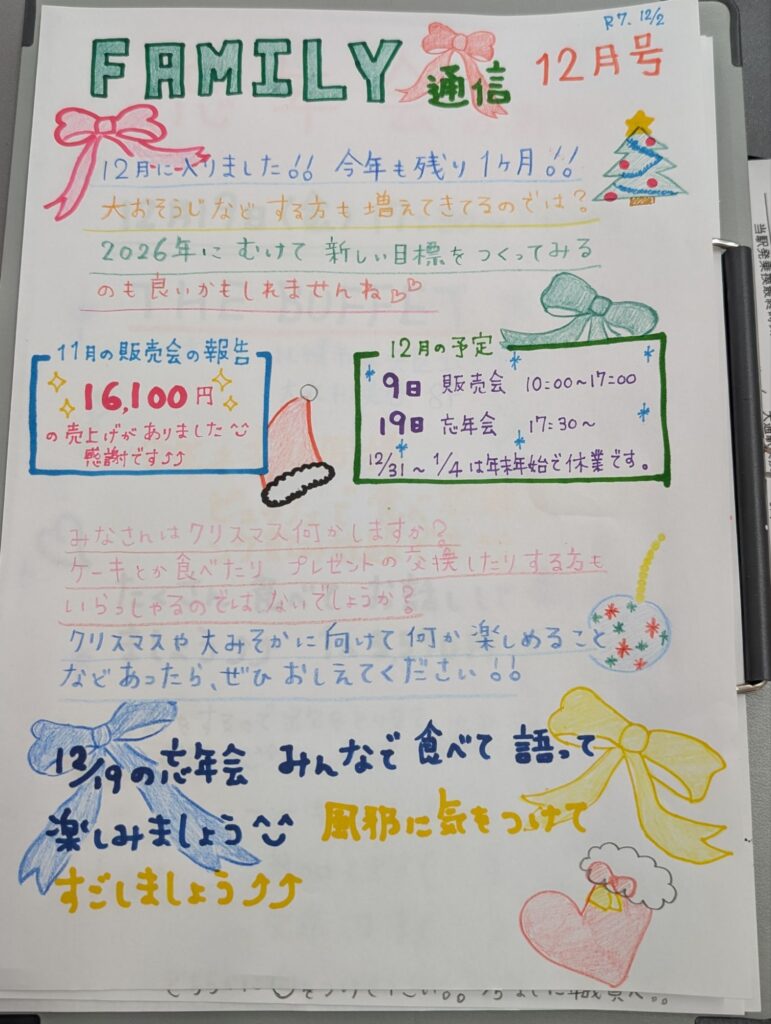 R7. 12/2
FAMILY 通信 12月号
12月に入りました!! 今年も残り1ヶ月!!
大おそうじなどする方も増えてきてるのでは?
2026年にむけて新しい目標をつくってみる
のも良いかもしれませんね♡♡
11月の販売会の報告
16,100円
の売上げがありました^^
感謝です⤴⤴
12月の予定
9日 販売会 10:00~17:00
19日 忘年会 17:30~
12/31~1/4は年末年始で休業です。
みなさんはクリスマス何かしますか?
ケーキとか食べたり プレゼントの交換したりする方も
いらっしゃるのではないでしょうか?
クリスマスや大みそかに向けて何か楽しめること
などあったら、ぜひおしえてください!!
12/19の忘年会 みんなで食べて語って
楽しみましょう^^ 風邪に気をつけて
すごしましょう⤴⤴